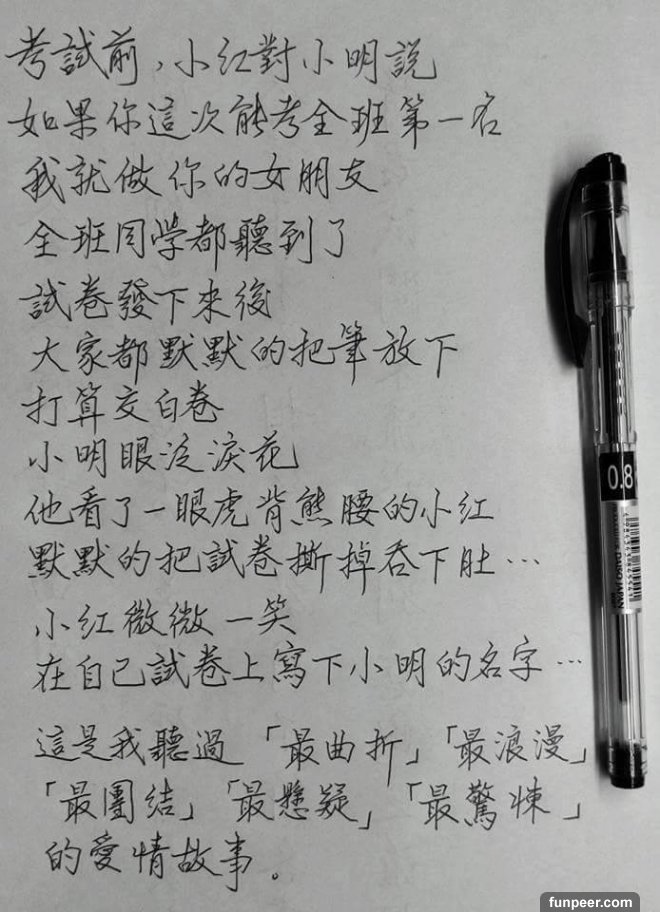 考試前，小红對小明説
如果你這次能考全班第一名
我就做你的女朋友
全班同學都聽到了
試卷發下來後
大家都默默的把筆放下
打算交白卷
小明眼泛淚花
他看了一眼虎背熊腰的小红
默默的把試卷撕掉吞下肚…
小红微微一笑
在自己試卷上寫下小明的名字…
這是我聽過「最曲折」「最浪漫」
「最團結」「最懸疑」「最驚悚」
的愛情故事。
0.8
funpeer.com